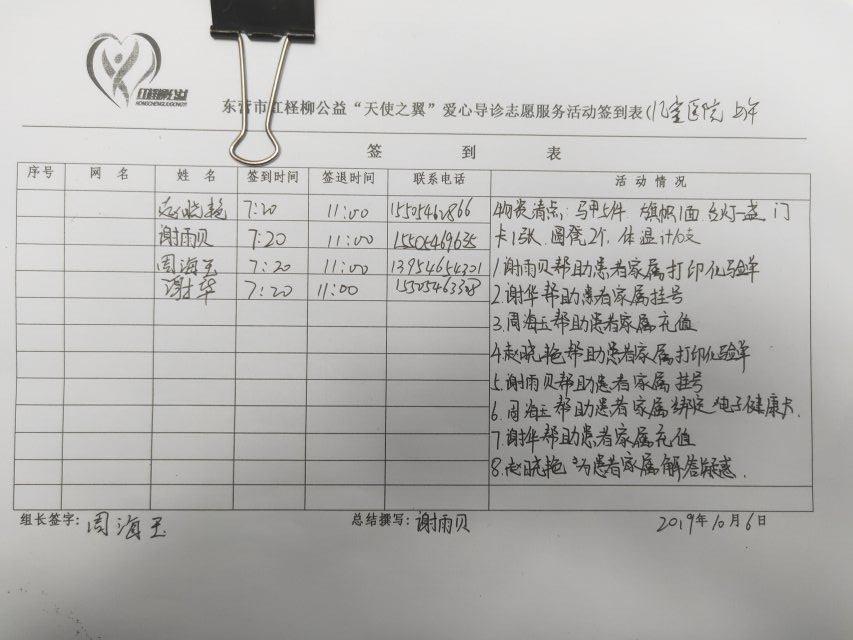 红柽柳公益
HONGCHENGLIUGONGYI
东营市红柽柳公益“天使之翼”爱心导诊志愿服务活动签到表(儿童医院 上午
签 到 表
序号 网 名 姓 名 签到时间 签退时间 联系电话 活 动 情 况
赵晓艳 7:20 11:00 15505462866
谢雨贝 7:20 11:00 15505469635
周海玉 7:20 11:00 13954654301
谢华 7:20 11:00 15505463308
物资清点:马甲5件 旗帜1面 台灯一盏 门
卡1张 圆凳2个 体温计10支
1.谢雨贝帮助患者家属打印化验单
2.谢华帮助患者家属挂号
3.周海玉帮助患者家属充值
4.赵晓艳帮助患者家属打印化验单
5.谢雨贝帮助患者家属挂号
6.周海玉帮助患者家属绑定电子健康卡.
7.谢华帮助患者家属充值
8.赵晓艳为患者家属解答疑惑.
组长签字:周海玉 总结撰写:谢雨贝 2019年10月6日